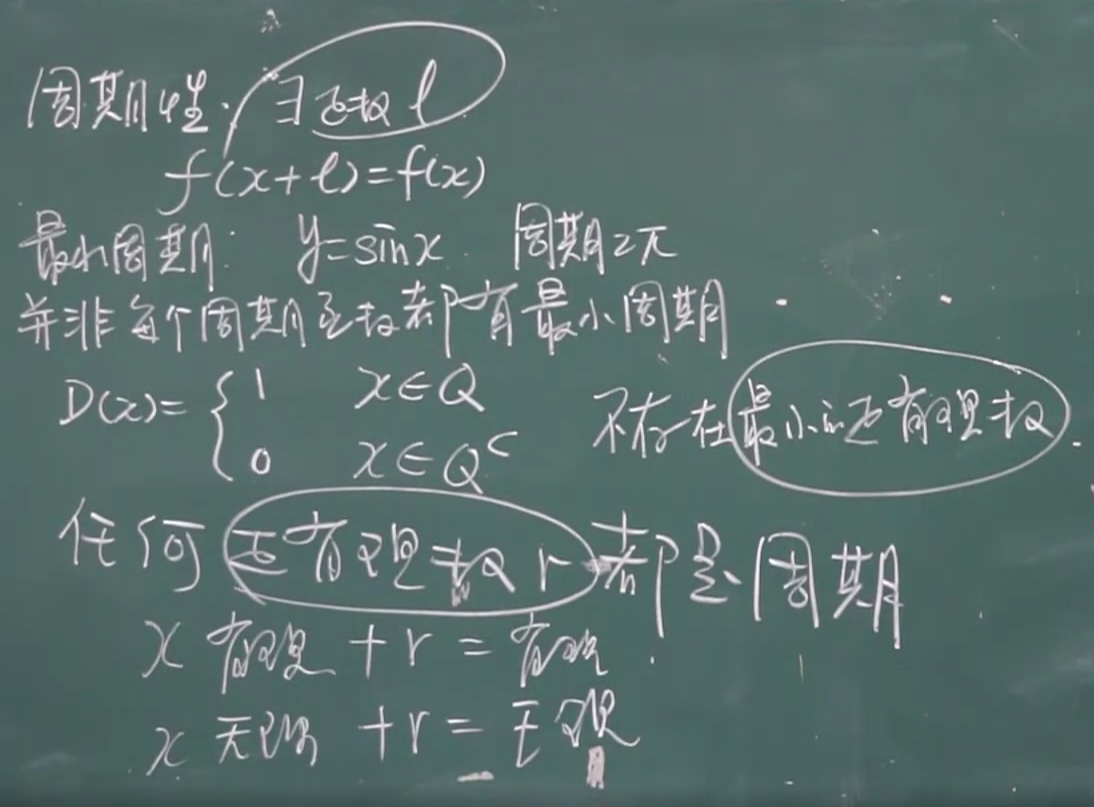 周期性. ∃正数 l
f(x+l)=f(x)
最小周期: y=sinx. 周期2π
并非每个周期函数都有最小周期
D(x)={1 x∈Q
0 x∈Qᶜ
不存在最小正有理数.
任何正有理数 r 都是周期
x 有理 +r = 有理.
x 无理 +r = 无理